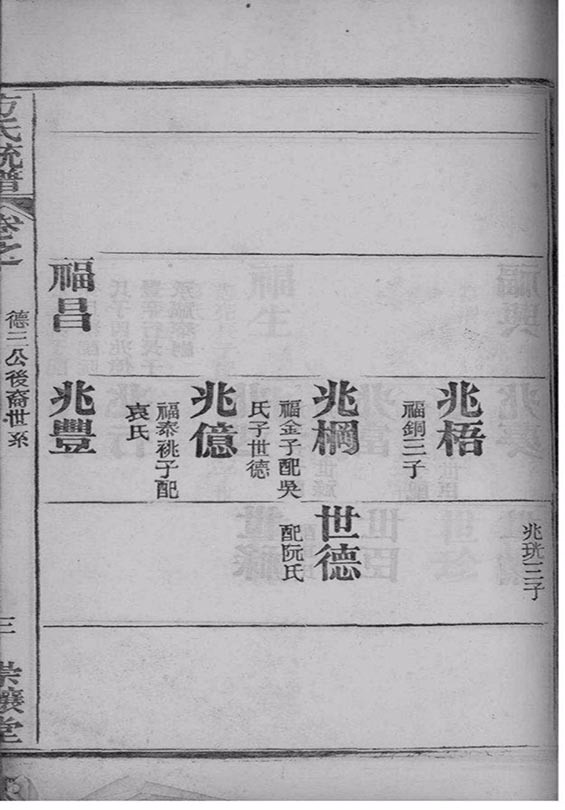 兆珖三子
兆梧
福銅三子
兆棡
福金子配吳
氏子世德
世德
配阮氏
兆億
福泰祧子配
袁氏
福昌
兆豐
方氏統譜
卷之一
德三公後裔世系
三
堂